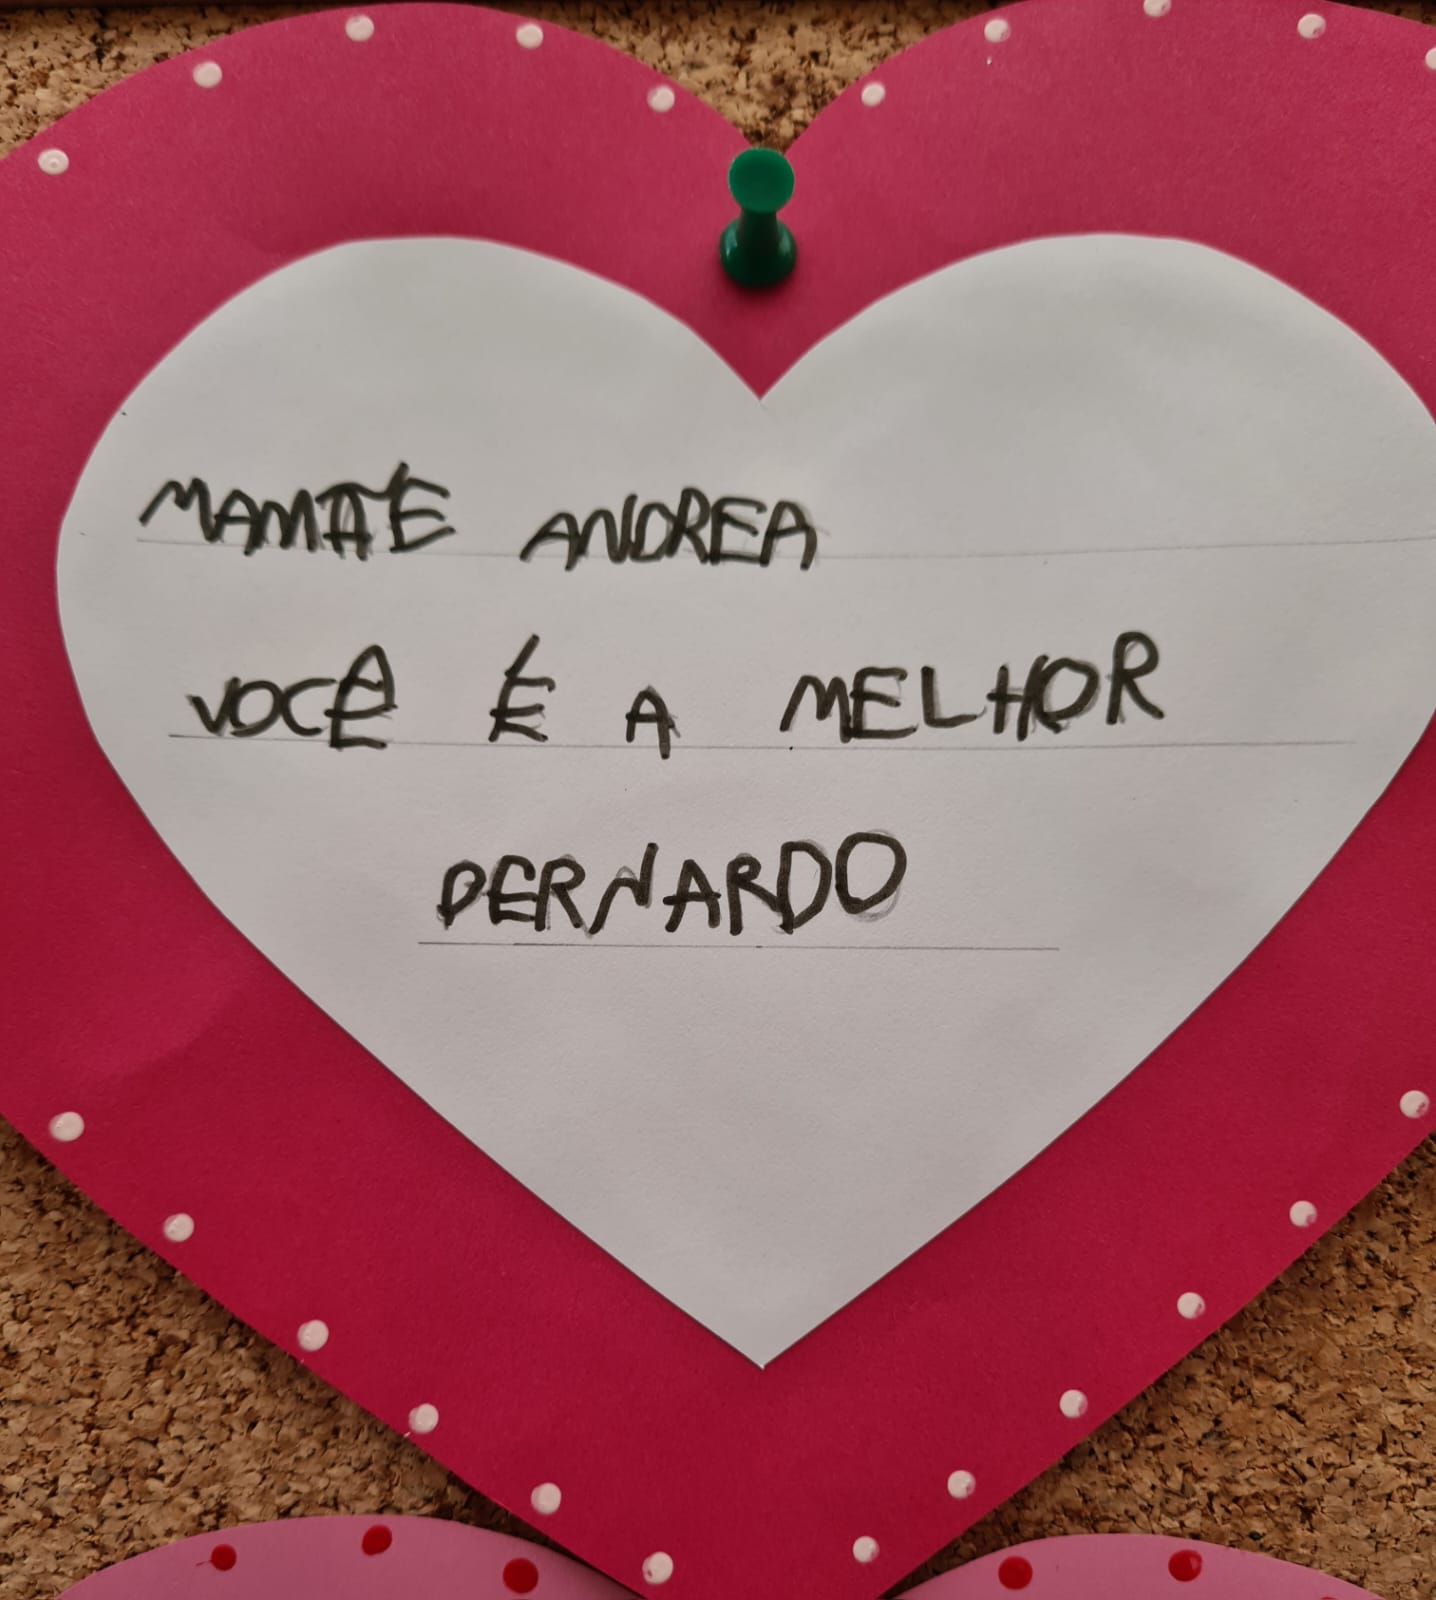 MAMÃE ANDREA
VOCÊ É A MELHOR
BERNARDO